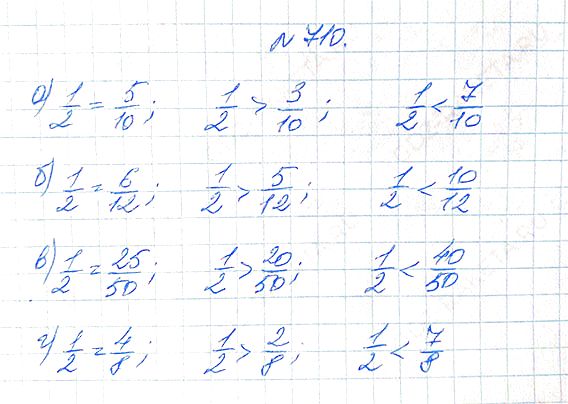 № 710.
а) 1/2 = 5/10; 1/2 > 3/10; 1/2 < 7/10
б) 1/2 = 6/12; 1/2 > 5/12; 1/2 < 10/12
в) 1/2 = 25/50; 1/2 > 20/50; 1/2 < 40/50
г) 1/2 = 4/8; 1/2 > 2/8; 1/2 < 7/8